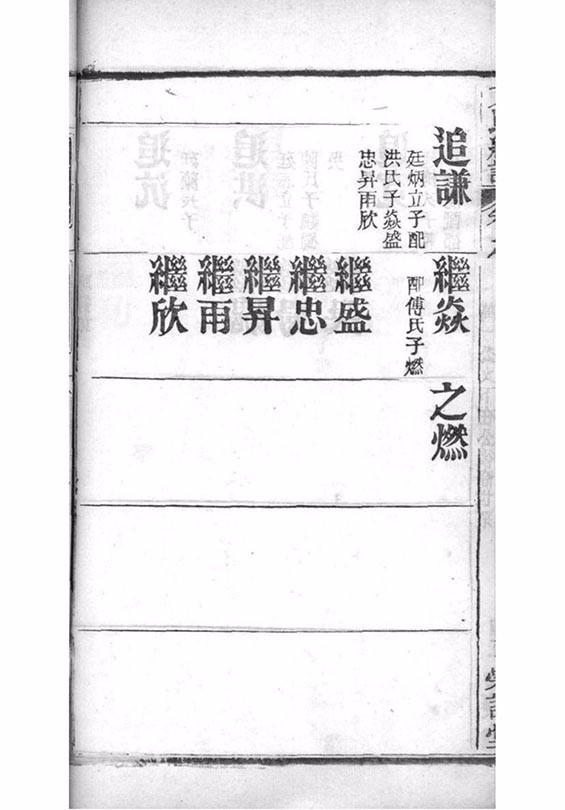 追謙
廷炳立子配
洪氏子焱盛
忠昇雨欣
繼焱
配傅氏子燃
繼盛
繼忠
繼昇
繼雨
繼欣
之燃